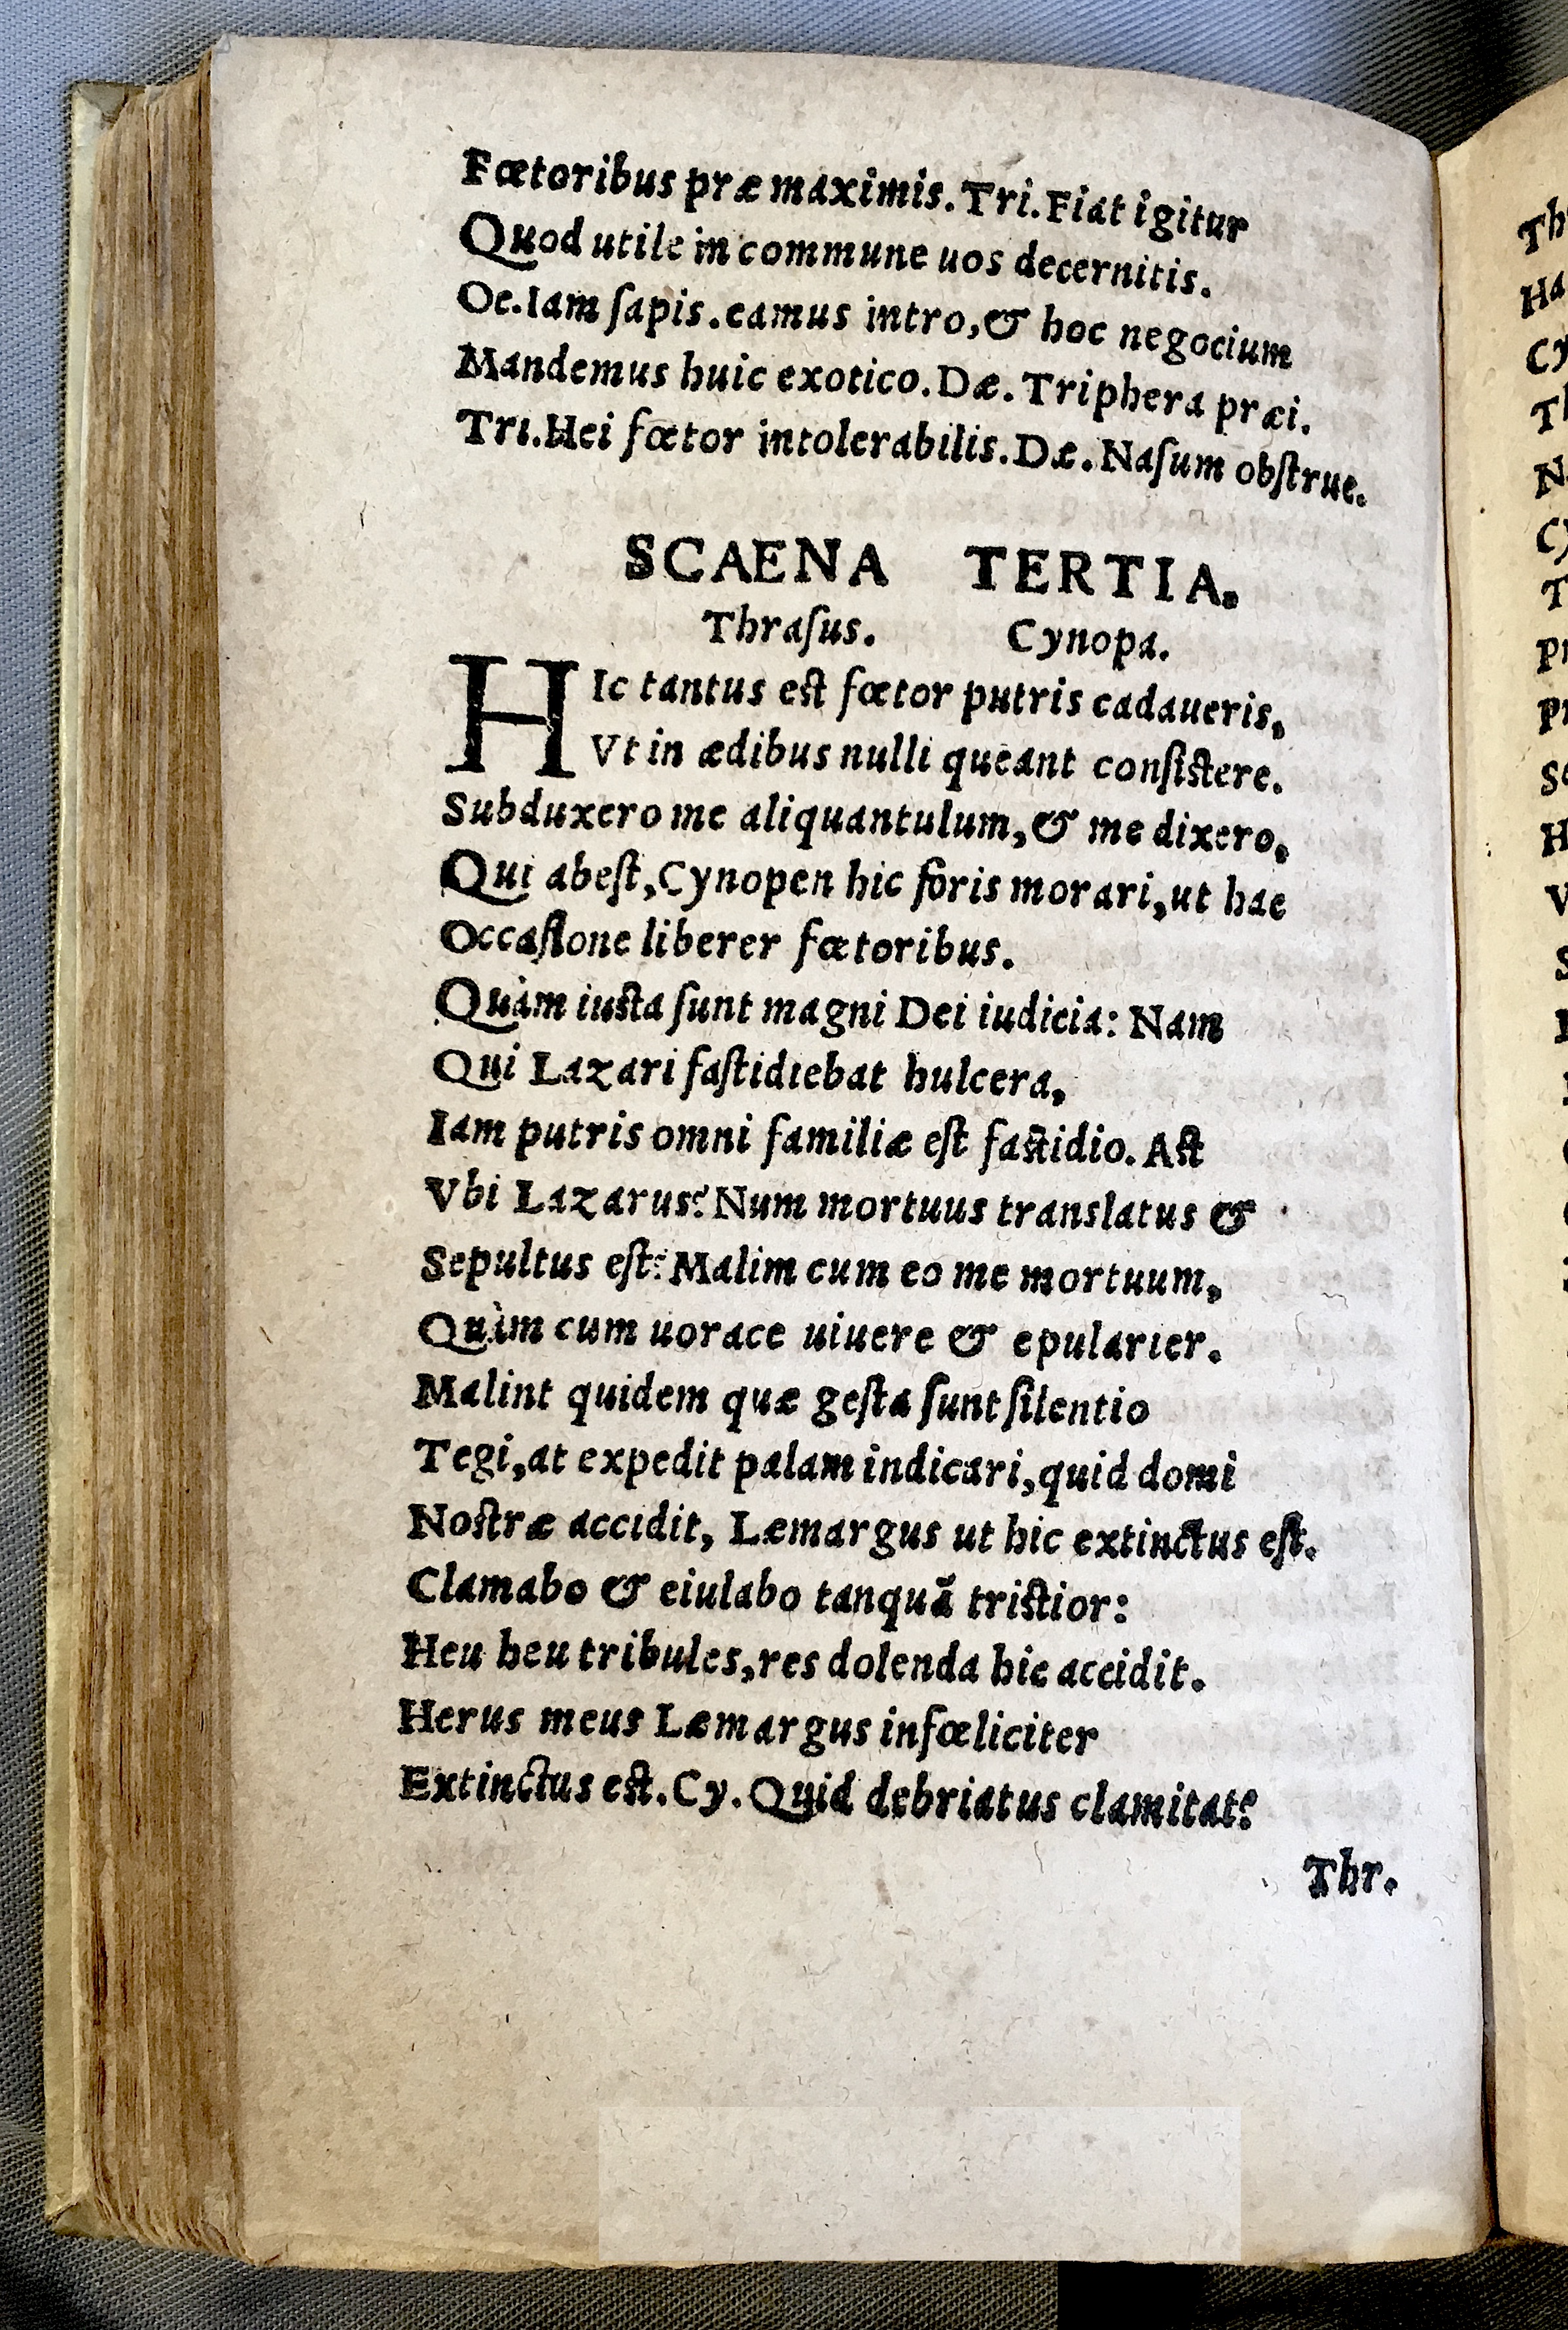 Fœtoribus præ maximis. Tri. Fiat igitur
Quod utile in commune uos decernitis.
Oe. Iam ſapis. eamus intro, & hoc negocium
Mandemus huic exotico. Dæ. Triphera præi.
Tri. Hei fœtor intolerabilis. Dæ. Naſum obſtrue.
SCAENA TERTIA.
Thraſus. Cynopa.
HIc tantus eſt fœtor putris cadaueris,
Vt in ædibus nulli queant conſiſtere.
Subduxero me aliquantulum, & me dixero,
Qui abeſt, Cynopen hic foris morari, ut hac
Occaſione liberer fœtoribus.
Quàm iuſta ſunt magni Dei iudicia: Nam
Qui Lazari faſtidiebat hulcera,
Iam putris omni familiæ eſt faſtidio. Aſt
Vbi Lazarus? Num mortuus translatus &
Sepultus eſt? Malim cum eo me mortuum,
Quàm cum uorace uiuere & epularier.
Malint quidem quæ geſta ſunt ſilentio
Tegi, at expedit palam indicari, quid domi
Noſtræ accidit, Læmargus ut hic extinctus eſt.
Clamabo & eiulabo tanquã triſtior:
Heu heu tribules, res dolenda hic accidit.
Herus meus Læmargus infœliciter
Extinctus eſt. Cy. Quid debriatus clamitat?
Thr.